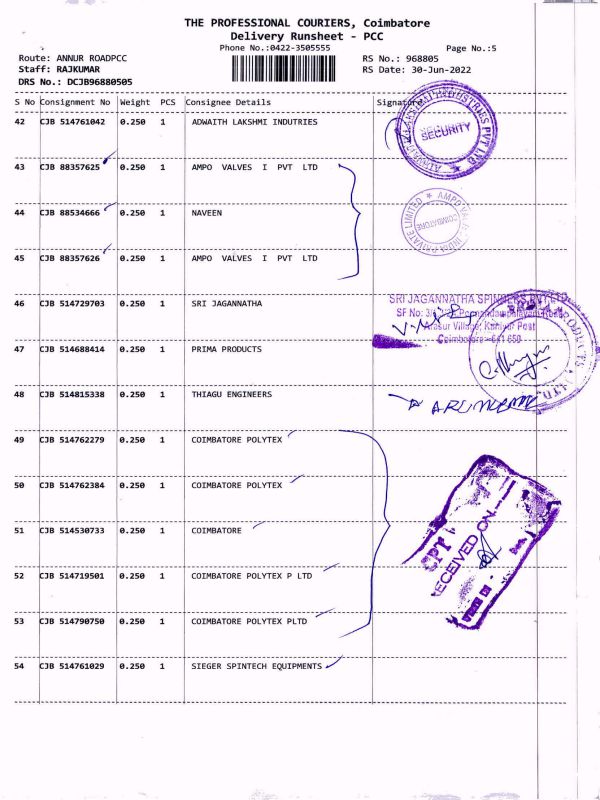 THE PROFESSIONAL COURIERS, Coimbatore
Delivery Runsheet - PCC
Phone No.:0422-3505555 Page No.:5
Route: ANNUR ROADPCC RS No.: 968805
Staff: RAJKUMAR RS Date: 30-Jun-2022
DRS No.: DCJB96880505
S No Consignment No Weight PCS Consignee Details Signature
42 CJB 514761042 0.250 1 ADWAITH LAKSHMI INDUTRIES
SECURITY
43 CJB 88357625 0.250 1 AMPO VALVES I PVT LTD
44 CJB 88534666 0.250 1 NAVEEN
COIMBATORE
45 CJB 88357626 0.250 1 AMPO VALVES I PVT LTD
46 CJB 514729703 0.250 1 SRI JAGANNATHA
SRI JAGANNATHA SPINNERS PVT LTD
Arasur Village, Kaniyur Post
Coimbatore - 641 659
47 CJB 514688414 0.250 1 PRIMA PRODUCTS
48 CJB 514815338 0.250 1 THIAGU ENGINEERS
49 CJB 514762279 0.250 1 COIMBATORE POLYTEX
50 CJB 514762384 0.250 1 COIMBATORE POLYTEX
51 CJB 514530733 0.250 1 COIMBATORE
CPT
RECEIVED ON
52 CJB 514719501 0.250 1 COIMBATORE POLYTEX P LTD
53 CJB 514790750 0.250 1 COIMBATORE POLYTEX PLTD
54 CJB 514761029 0.250 1 SIEGER SPINTECH EQUIPMENTS